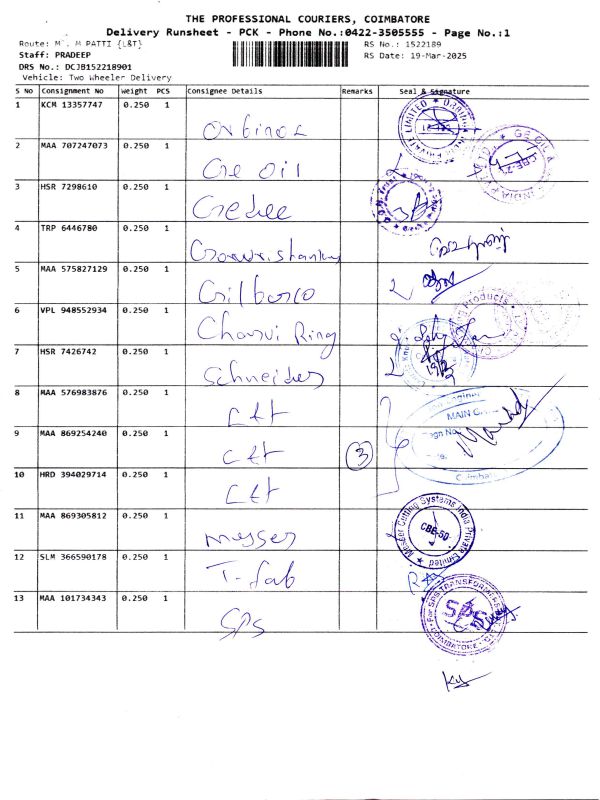 THE PROFESSIONAL COURIERS, COIMBATORE
Delivery Runsheet - PCK - Phone No.:0422-3505555 - Page No.:1
Route: M PATTI {L&T}
RS No.: 1522189
Staff: PRADEEP
RS Date: 19-Mar-2025
DRS No.: DCJB152218901
Vehicle: Two Wheeler Delivery
S No Consignment No Weight PCS Consignee Details Remarks Seal & Signature
1 KCM 13357747 0.250 1
2 MAA 707247073 0.250 1 Ge oil
3 HSR 7298610 0.250 1 Gedee
4 TRP 6446780 0.250 1
5 MAA 575827129 0.250 1 Gilbarco
6 VPL 948552934 0.250 1 Ring
7 HSR 7426742 0.250 1 Schneider
8 MAA 576983876 0.250 1 L&t
9 MAA 869254240 0.250 1 L&t 3
10 HRD 394029714 0.250 1 L&t
11 MAA 869305812 0.250 1 Messer Messer Cutting Systems India Private Limited CBE-50
12 SLM 366590178 0.250 1 T-fab
13 MAA 101734343 0.250 1 SPS For SPS TRANSFORM SPS COIMBATORE